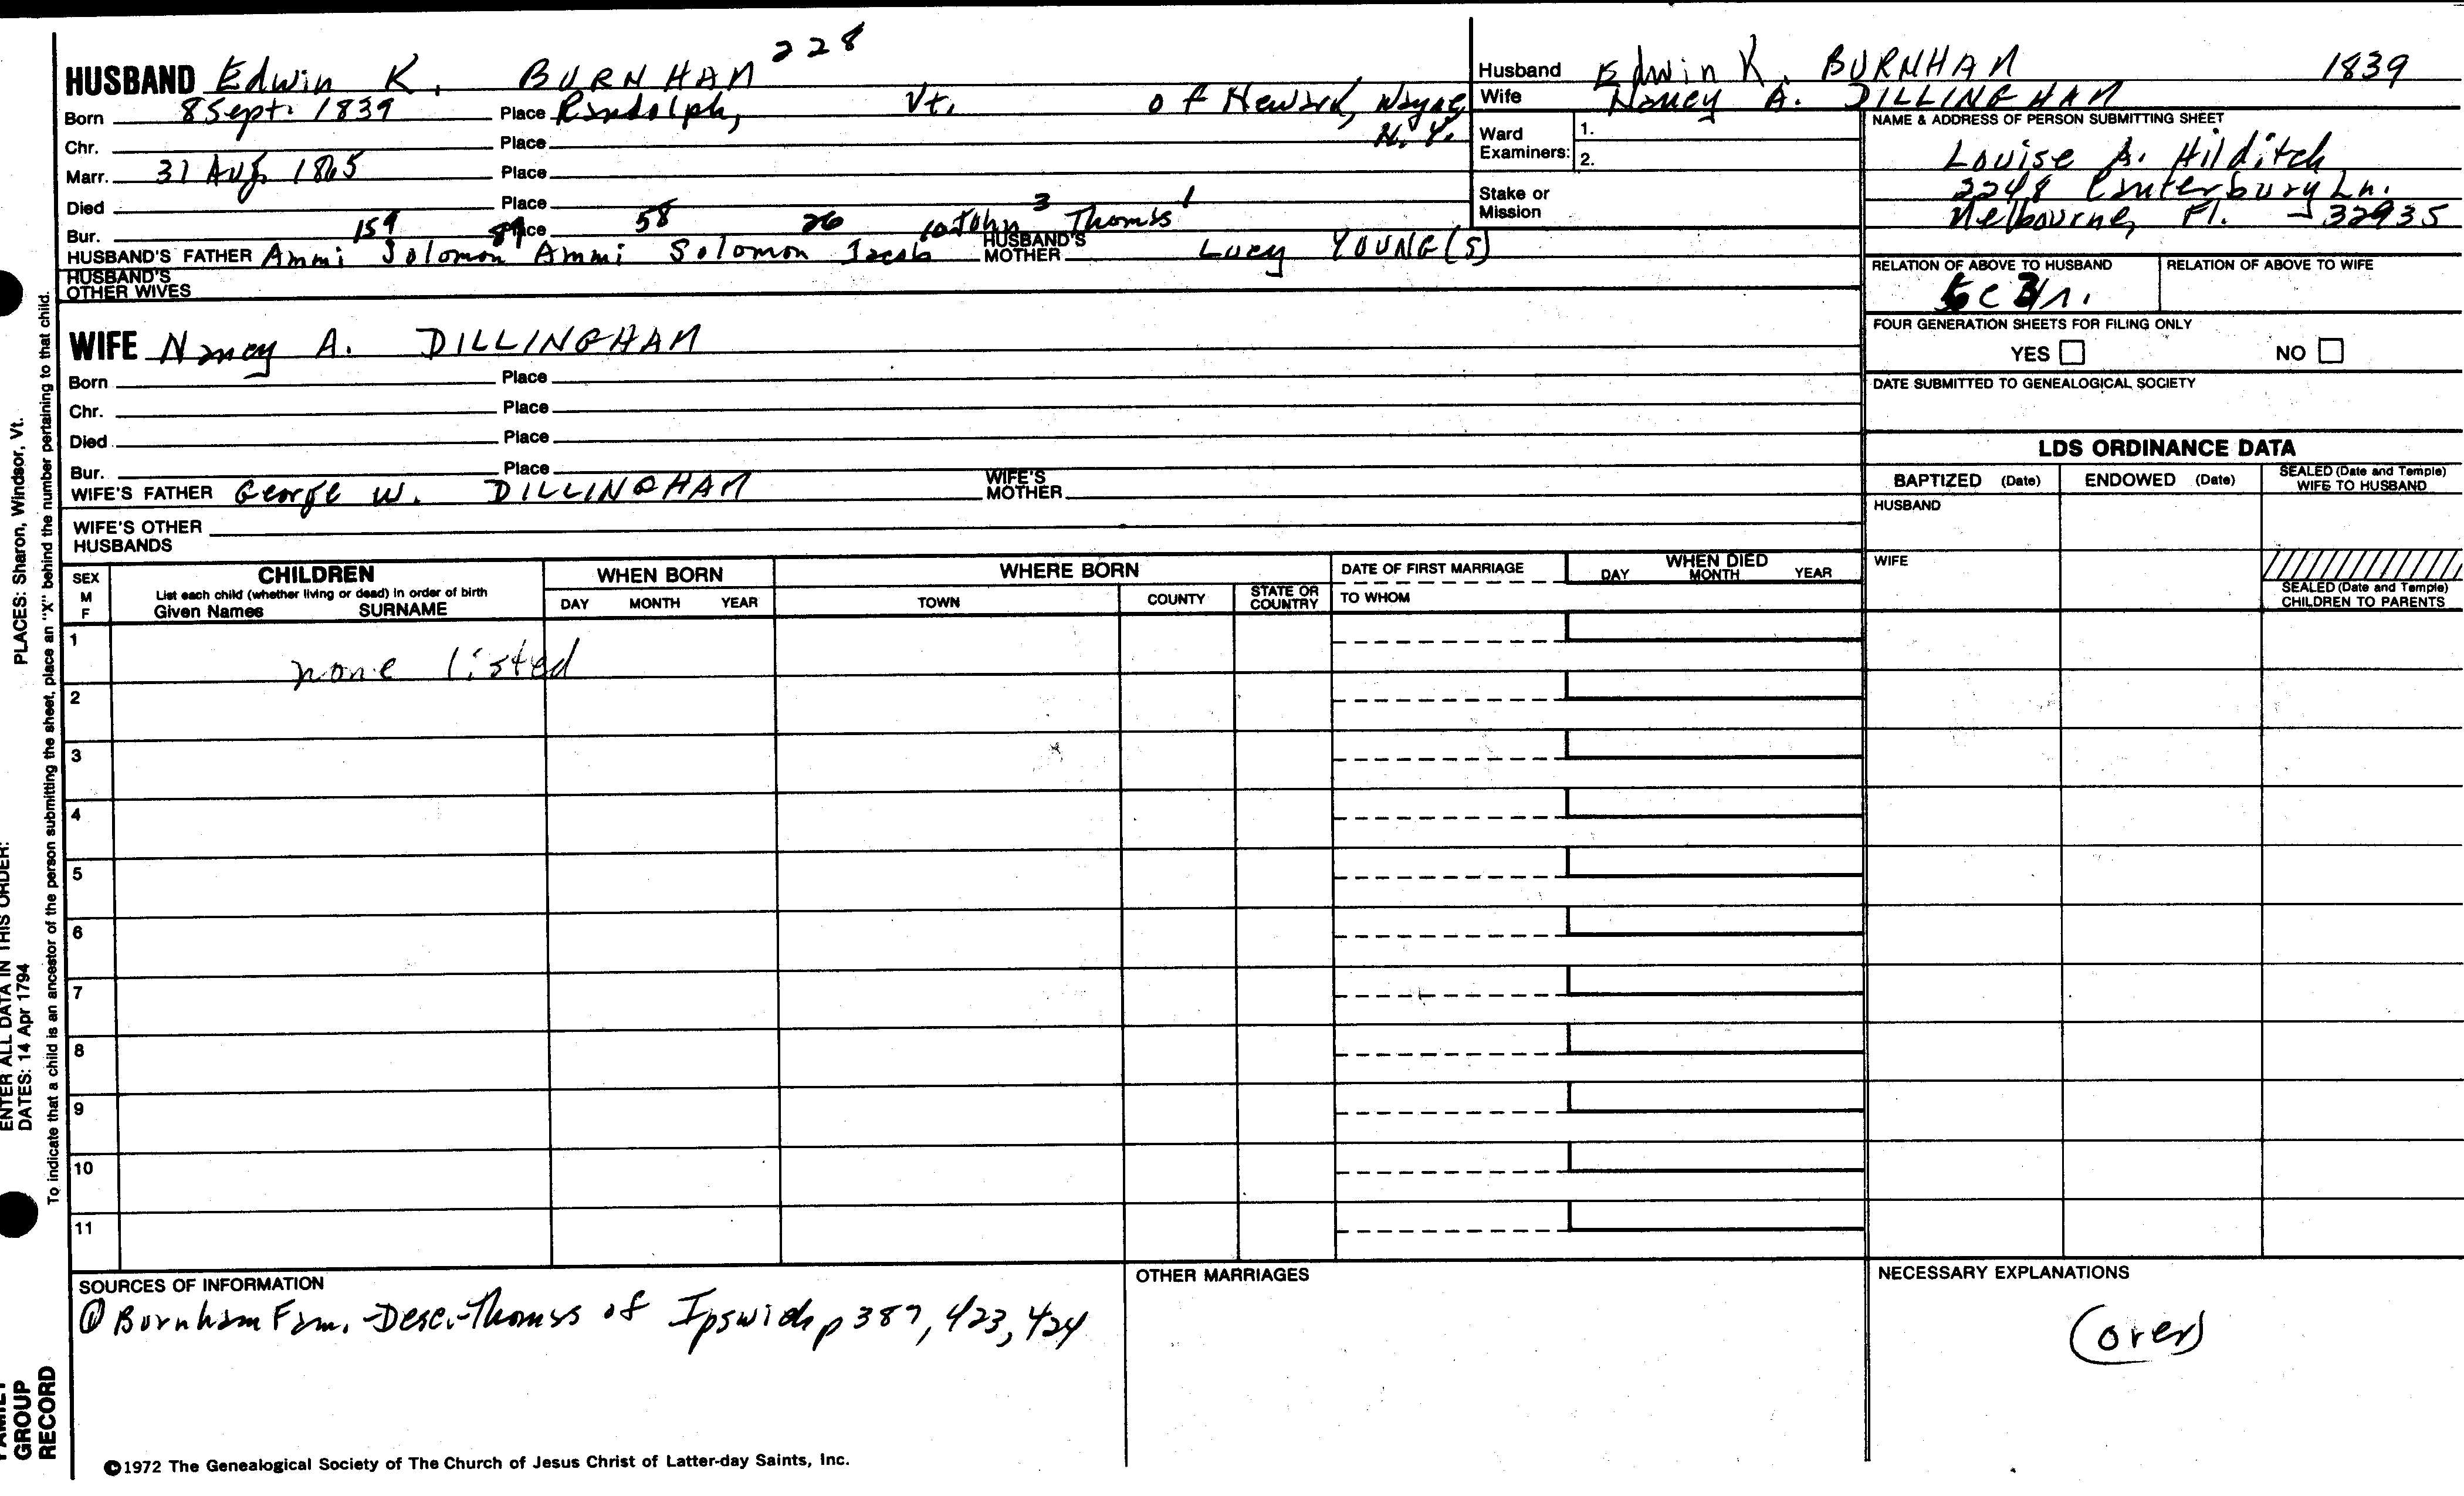 228
HUSBAND Edwin K. BURNHAM
Born 8 Sept. 1839 Place Randolph, Vt. of Newark, Wayne, N.Y.
Chr. Place
Marr. 31 Aug 1865 Place
Died Place
Bur. Place
159 89 58 26 10 John 3 Thomas 1
HUSBAND'S FATHER Ammi Solomon Ammi Solomon Jacob HUSBAND'S MOTHER Lucy YOUNG(S)
HUSBAND'S OTHER WIVES
WIFE Nancy A. DILLINGHAM
Born Place
Chr. Place
Died Place
Bur. Place
WIFE'S FATHER George W. DILLINGHAM WIFE'S MOTHER
WIFE'S OTHER HUSBANDS
Husband Edwin K. BURNHAM 1839
Wife Nancy A. DILLINGHAM
Ward Examiners: 1.
2.
Stake or Mission
NAME & ADDRESS OF PERSON SUBMITTING SHEET
Louise A. Hilditch
2248 Canterbury Ln.
Melbourne, Fl. 32935
RELATION OF ABOVE TO HUSBAND RELATION OF ABOVE TO WIFE
FOUR GENERATION SHEETS FOR FILING ONLY
YES NO
DATE SUBMITTED TO GENEALOGICAL SOCIETY
LDS ORDINANCE DATA
BAPTIZED (Date) ENDOWED (Date) SEALED (Date and Temple) WIFE TO HUSBAND
HUSBAND
WIFE
SEALED (Date and Temple) CHILDREN TO PARENTS
SEX M F
CHILDREN
List each child (whether living or dead) in order of birth
Given Names SURNAME
WHEN BORN
DAY MONTH YEAR
WHERE BORN
TOWN COUNTY STATE OR COUNTRY
DATE OF FIRST MARRIAGE
TO WHOM
WHEN DIED
DAY MONTH YEAR
1 none listed
2
3
4
5
6
7
8
9
10
11
SOURCES OF INFORMATION
① Burnham Fam. -Desc.-Thomas of Ipswich p 387, 423, 424
OTHER MARRIAGES
NECESSARY EXPLANATIONS
(over)
©1972 The Genealogical Society of The Church of Jesus Christ of Latter-day Saints, Inc.
PLACES: Sharon, Windsor, Vt.
ENTER ALL DATA IN THIS ORDER:
DATES: 14 Apr 1794
To indicate that a child is an ancestor of the person submitting the sheet, place an "X" behind the number pertaining to that child.
FAMILY GROUP RECORD